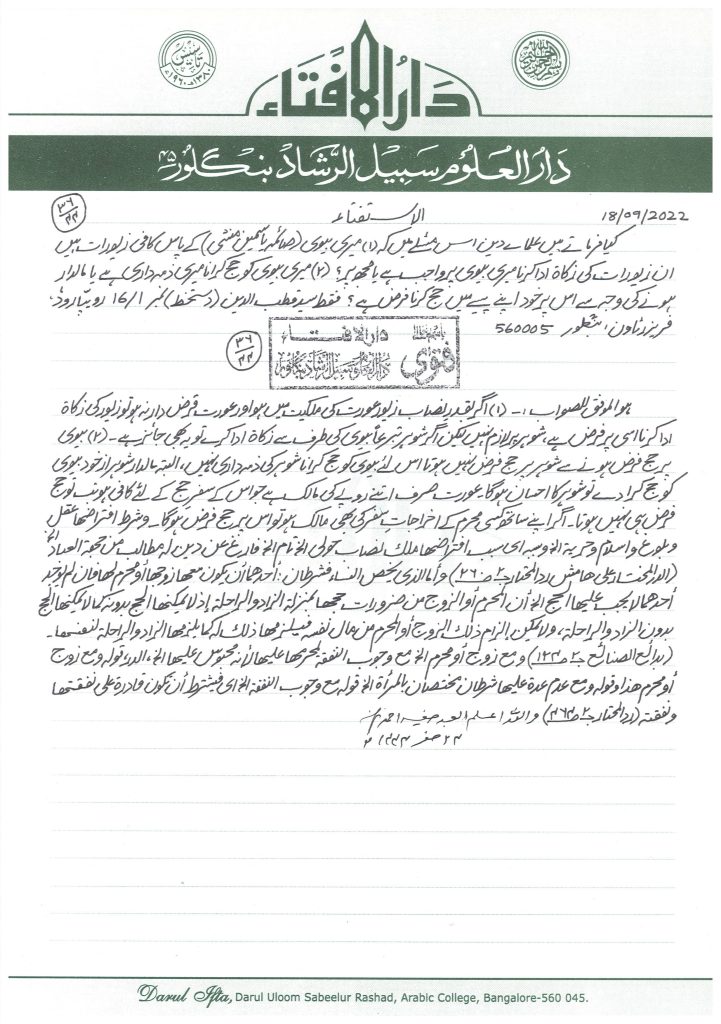 دَارُ الإفتَاء
دَارُ العُلُوم سَبِيل الرَّشَاد بنگلور ۴۵
18/09/2022
الاستفتاء
۳۶/۴۴
کیا فرماتے ہیں علمائے دین اس مسئلے میں کہ (۱) میری بیوی (صائمہ یاسمین منشی) کے پاس کافی زیورات ہیں
ان زیورات کی زکاۃ ادا کرنا میری بیوی پر واجب ہے یا مجھ پر؟ (۲) میری بیوی کو حج کرانا میری ذمہ داری ہے یا مالدار
ہونے کی وجہ سے اس پر خود اپنے پیسے میں حج کرنا فرض ہے؟ فقط سید قطب الدین (دستخط) نمبر 16/1 روڈ،
فریزر ٹاون، بنگلور 560005
۳۶/۴۴
باسمہ تعالیٰ
فتویٰ
دار الافتاء
دار العلوم سبیل الرشاد بنگلور
ھو الموفق للصواب :- (۱) اگر بقدر نصاب زیور عورت کی ملکیت میں ہو اور عورت قرض دار نہ ہو تو زیور کی زکاۃ
ادا کرنا اسی پر فرض ہے، شوہر پر لازم نہیں لیکن اگر شوہر تبرعاً بیوی کی طرف سے زکاۃ ادا کرے تو یہ بھی جائز ہے - (۲) بیوی
پر حج فرض ہونے سے شوہر پر حج فرض نہیں ہوتا اس لئے بیوی کو حج کرانا شوہر کی ذمہ داری نہیں، البتہ مالدار شوہر از خود بیوی
کو حج کرا دے تو شوہر کا احسان ہوگا۔ عورت صرف اتنے روپے کی مالک ہے جو اس کے سفر حج کے لئے کافی ہو تب تو حج
فرض ہی نہیں ہوتا۔ اگر اپنے ساتھ کسی محرم کے اخراجات سفر کی بھی مالک ہو تو اس پر حج فرض ہوگا۔ وشرط افتراضها عقل
وبلوغ واسلام وحرية الخ وسببه ای سبب افتراضها ملك نصاب حولی الخ تام الخ فارغ عن دین له مطالب من جهة العباد الخ
(الدر المختار علی هامش رد المختار ج۲ ص) واما الذی یخص النساء فشرطان: أحدهما أن یکون معها زوجها أو محرم لها فان لم یوجد
أحدهما لا یجب علیها الحج الخ أن المحرم أو الزوج من ضرورات حجها بمنزلة الزاد والراحلة إذ لا یمکنها الحج بدونه کما لا یمکنها الحج
بدون الزاد والراحلة، ولا یمکن إلزام ذلك الزوج أو المحرم من مال نفسه فیلزمها ذلك له کما یلزمها الزاد والراحلة لنفسها۔
(بدائع الصنائع ج۲ ص۱۲۳) ومع زوج أو محرم الخ مع وجوب النفقة لمحرمها علیها لأنه محبوس علیها الخ، الدر، قوله ومع زوج
أو محرم هذا وقوله ومع عدم عدة علیها شرطان مختصان بالمرأة الخ قوله مع وجوب النفقة الخ ای فیشترط أن تکون قادرة علی نفقتها
ونفقته (رد المختار ج۲ ص۴۶۴) والله اعلم العبد صغیر احمد
۲۴ صفر ۱۴۴۴
Darul Ifta, Darul Uloom Sabeelur Rashad, Arabic College, Bangalore-560 045.